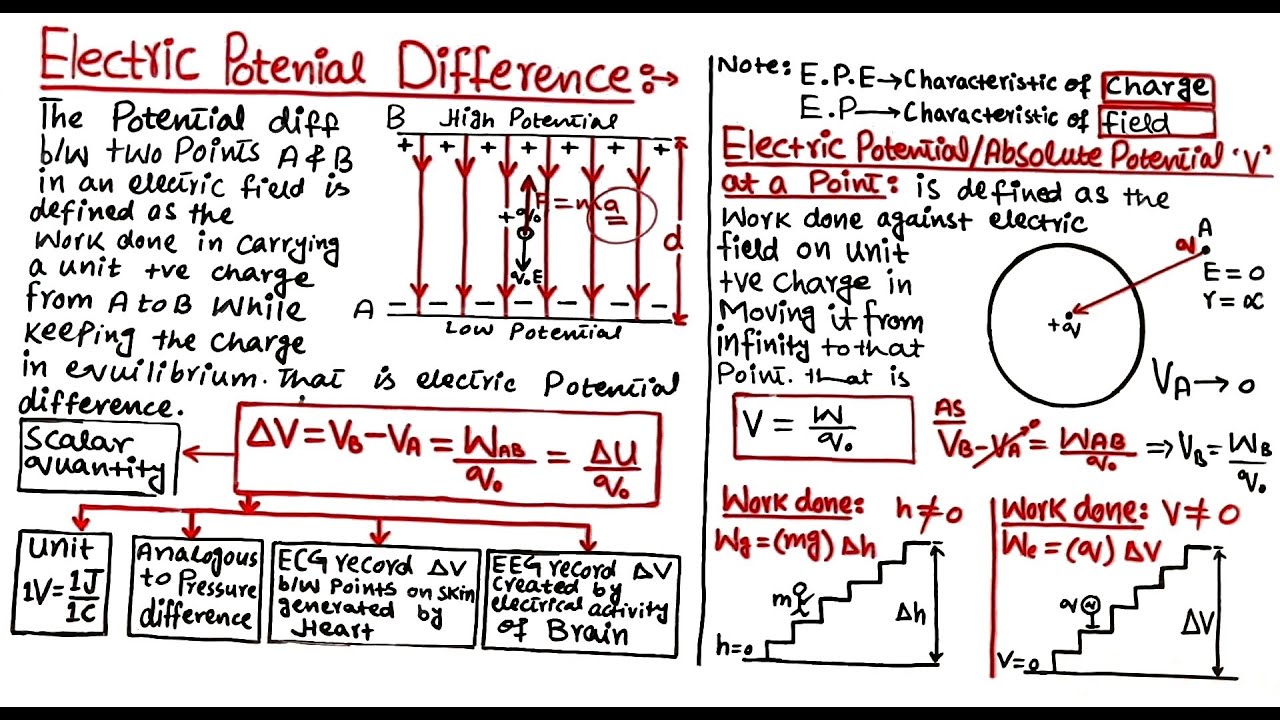 Electric Potenial Difference:→
The Potential diff
b/w two Points A & B
in an electric field is
defined as the
Work done in carrying
a unit +ve charge
from A to B While
Keeping the Charge
in evuilibrium. That is electric Potential
difference.
B High Potential
+ + + + + +
+q₀
F = ma
q.E
d
A − − − − − −
Low Potential
Scalar
quantity
ΔV = V_B − V_A = W_AB/q₀ = ΔU/q₀
Unit
1V = 1J/1C
Analogous
to Pressure
difference
ECG record ΔV
b/w Points on skin
generated by
Heart
EEG record ΔV
Created by
electrical activity
of Brain
Note: E.P.E → Characteristic of Charge
E.P → Characteristic of field
Electric Potential/Absolute Potential 'V'
at a Point: is defined as the
Work done against electric
field on unit
+ve Charge in
Moving it from
infinity to that
Point. that is
A
q
E = 0
r = ∝
+q
V_A → 0
V = W/q₀
AS
V_B − V_A = W_AB/q₀ ⇒ V_B = W_B/q₀
Work done: h ≠ 0
W_g = (mg) Δh
m
Δh
h=0
Work done: V ≠ 0
W_e = (q) ΔV
q
ΔV
V=0